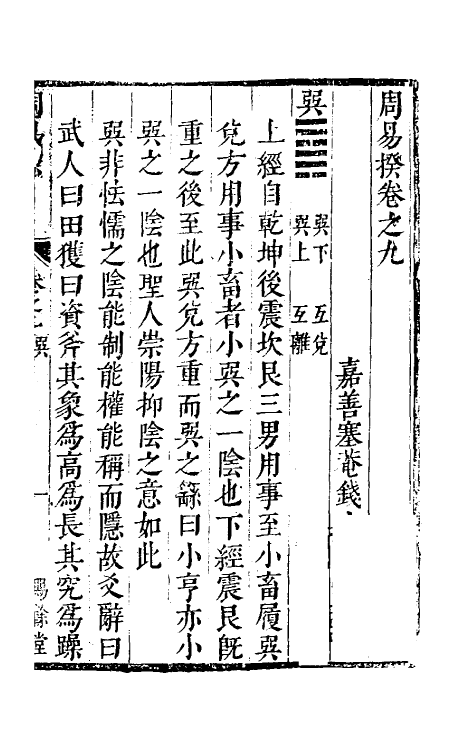 周易揆卷之九
嘉善塞菴錢
巽 巽下 互兌
巽上 互離
上經自乾坤後震坎艮三男用事至小畜履巽
兌方用事小畜者小巽之一陰也下經震艮旣
重之後至此巽兌方重而巽之繇曰小亨亦小
巽之一陰也聖人崇陽抑陰之意如此
巽非怯懦之陰能制能權能稱而隱故爻辭曰
武人曰田獲曰資斧其象爲高爲長其究爲躁
卷之九 巽 一
餘堂